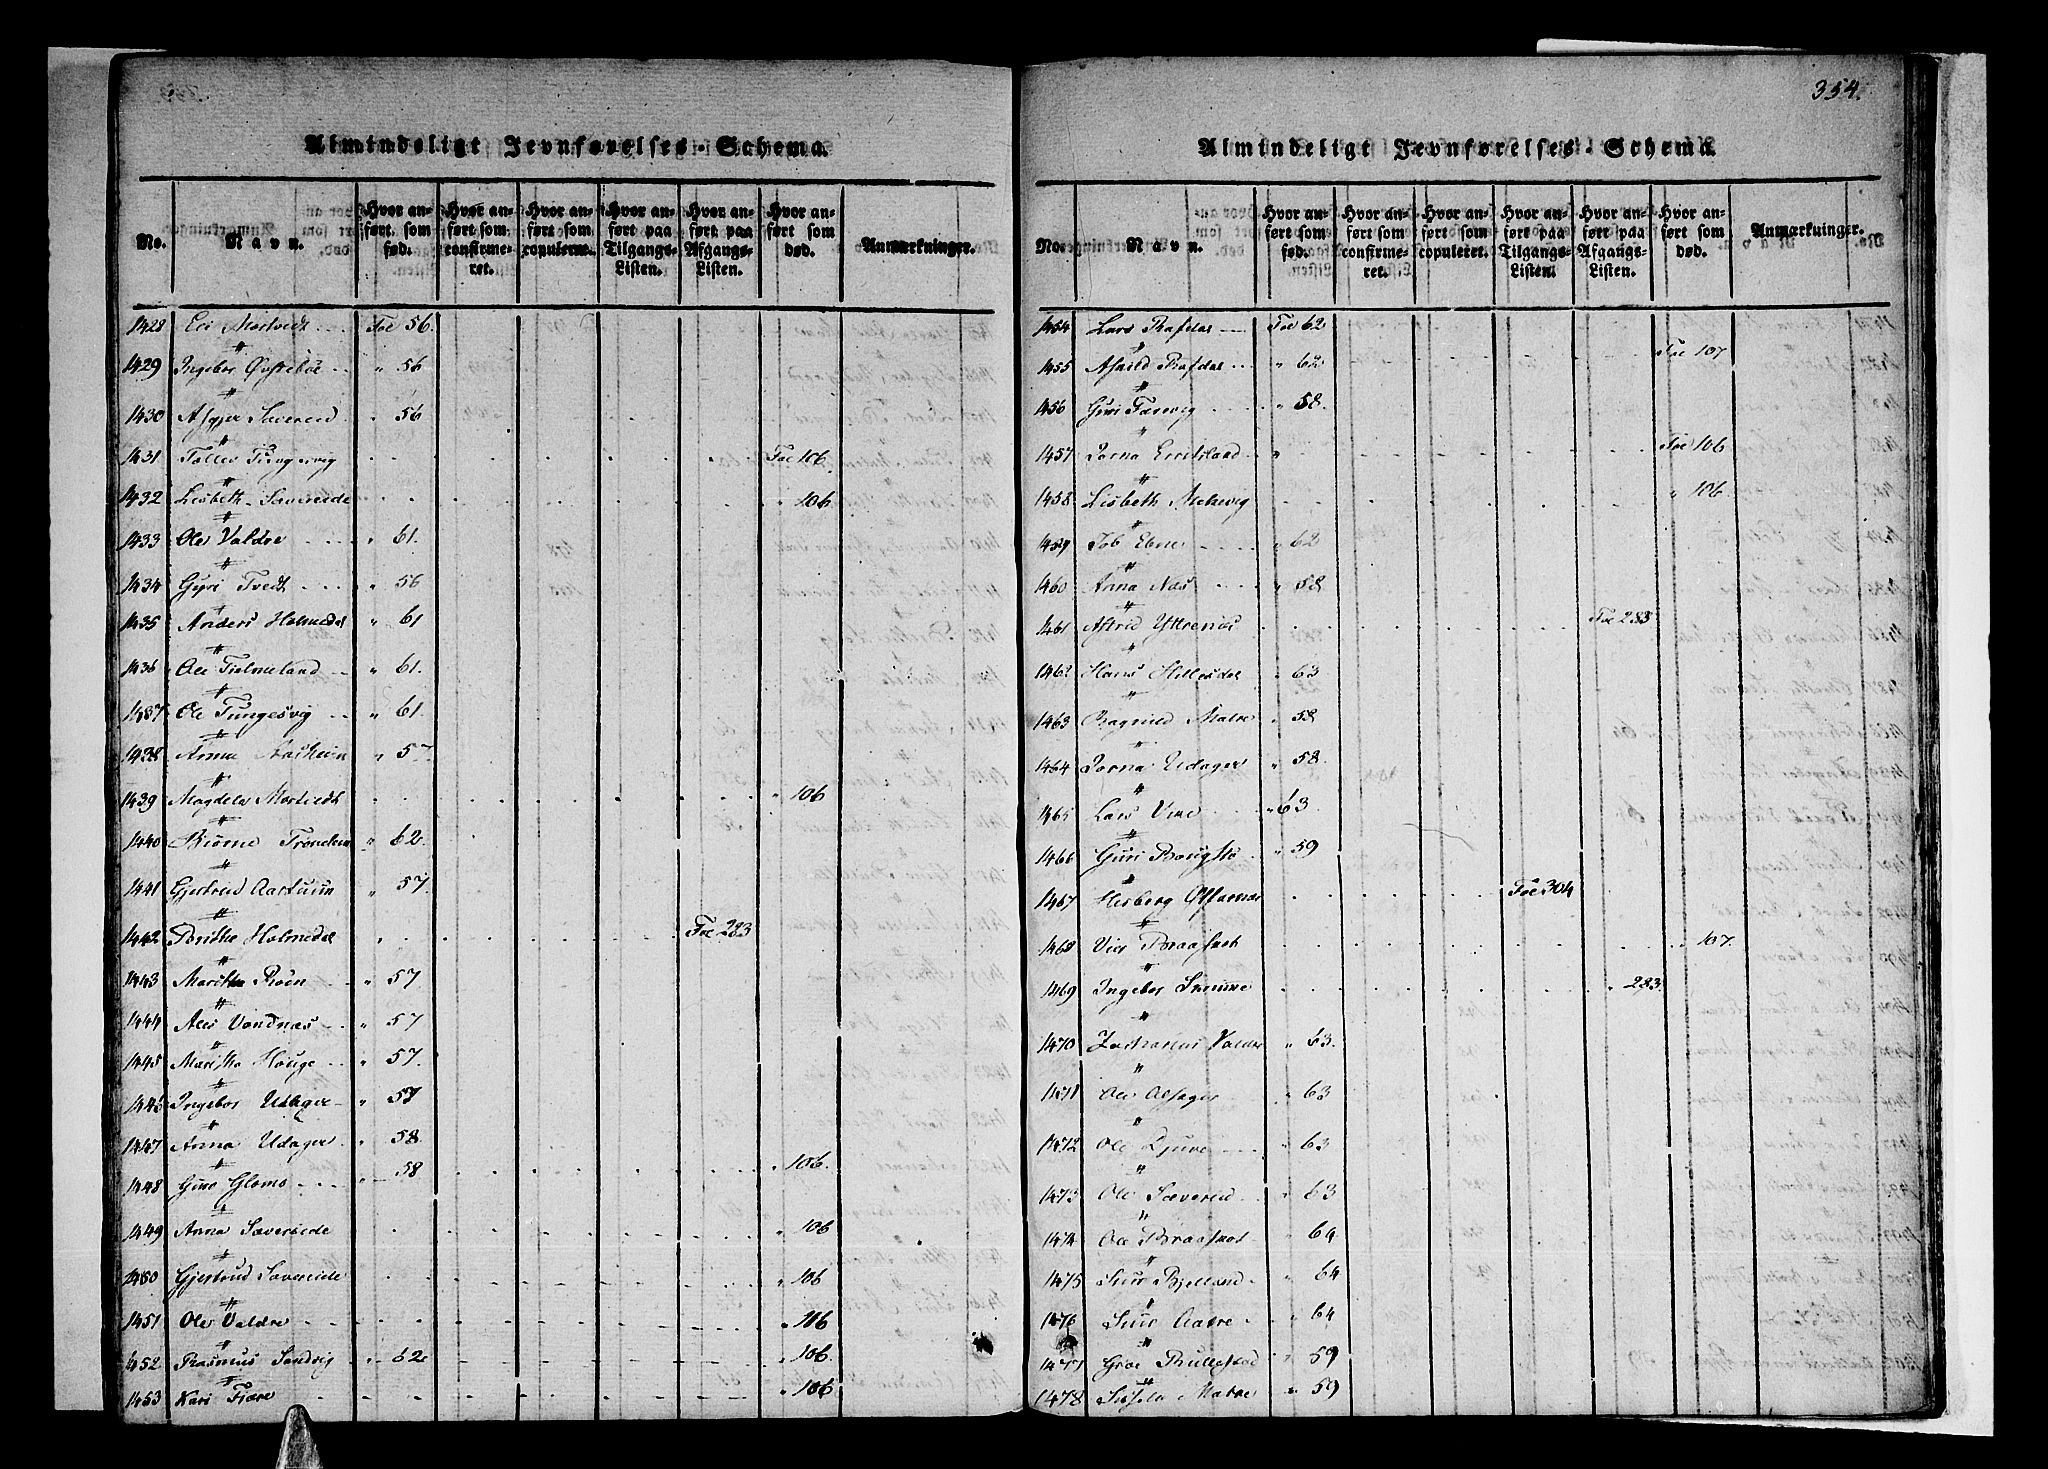 Almindeligt Jevnførelses-Schema.
No. Navn. Hvor anført som fød. Hvor anført som confirmeret. Hvor anført som copuleret. Hvor anført paa Tilgangs-Listen. Hvor anført paa Afgangs-Listen. Hvor anført som død. Anmærkninger.
1428 Eli Mortvedt Fol 56.
1429 Ingebor Øvstebøe " 56
1430 Asgjer Sævereid " 56
1431 Tollev Tungesvig Fol 106.
1432 Lisbeth Sævereide " 106
1433 Ole Valdre " 61.
1434 Guri Tvedt " 56
1435 Anders Holmedal " 61
1436 Ole Tielmeland " 61.
1437 Ole Tungesvig " 61.
1438 Anna Aarheim " 57.
1439 Magdela Mortvedt " 106
1440 Biørne Trønelien " 62.
1441 Gjertrud Aartuun " 57.
1442 Brithe Holmedal Fol 283
1443 Maritha Røen " 57.
1444 Ales Vandnæs " 57
1445 Maritha Houge " 57.
1446 Ingebor Udager " 57
1447 Anna Udager " 58.
1448 Guro Gloms " 58 " 106.
1449 Anna Sævereide " 106
1450 Gjertrud Sævereide " 106
1451 Ole Valdre " 106
1452 Rasmus Sandvig " 62. " 106.
1453 Kari Fiære " 106
354.
Almindeligt Jevnførelses-Schema.
No. Navn. Hvor anført som fød. Hvor anført som confirmeret. Hvor anført som copuleret. Hvor anført paa Tilgangs-Listen. Hvor anført paa Afgangs-Listen. Hvor anført som død. Anmærkninger.
1454 Lars Rafdal Fol 62
1455 Askild Rafdal " 62 Fol 107
1456 Guri Farevig " 58.
1457 Jorna Eeritsland " Fol 106
1458 Lisbeth Melkevig " 106
1459 Job Ebne " 62
1460 Anna Næs " 58
1461 Astrid Yttrenæs Fol 283
1462 Hans Hillesdal " 63
1463 Ragnild Matre " 58
1464 Jorna Udager " 58.
1465 Lars Vine " 63.
1466 Guri " 59
1467 Herborg Fol 304
1468 " 107.
1469 Ingebor Simme " 283.
1470 Zacharias Valdre " 63.
1471 Ole Alsager " 63
1472 Ole Djuve " 63
1473 Ole Sæverud " 63
1474 Ole Braatvet " 64
1475 Siur Bjelland " 64
1476 Siur Aatre " 64
1477 Groe Bullestad " 59
1478 Sissela Matre " 59